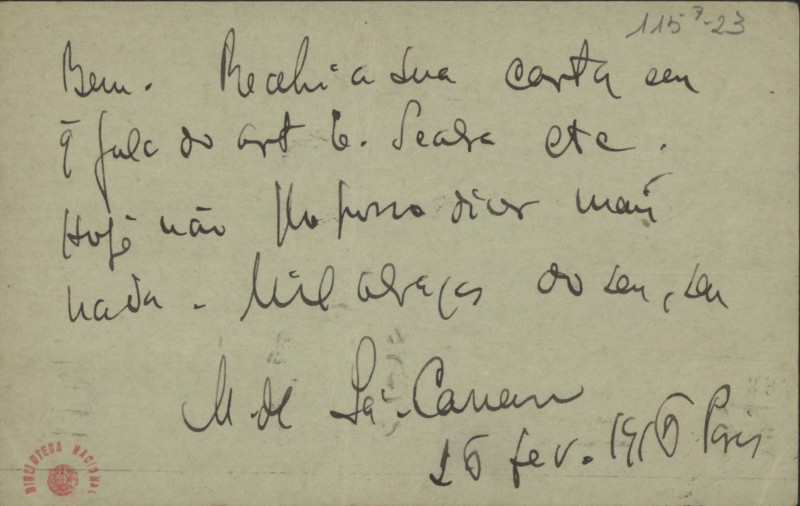 115⁷-23
Bem. Recebi a sua carta em
q̃ fala do art B. Seabra etc.
Hoje não lhe posso dizer mais
nada. Mil abraços do seu, seu
M. de Sá-Carneiro
26 fev. 1916 Paris
BIBLIOTECA NACIONAL